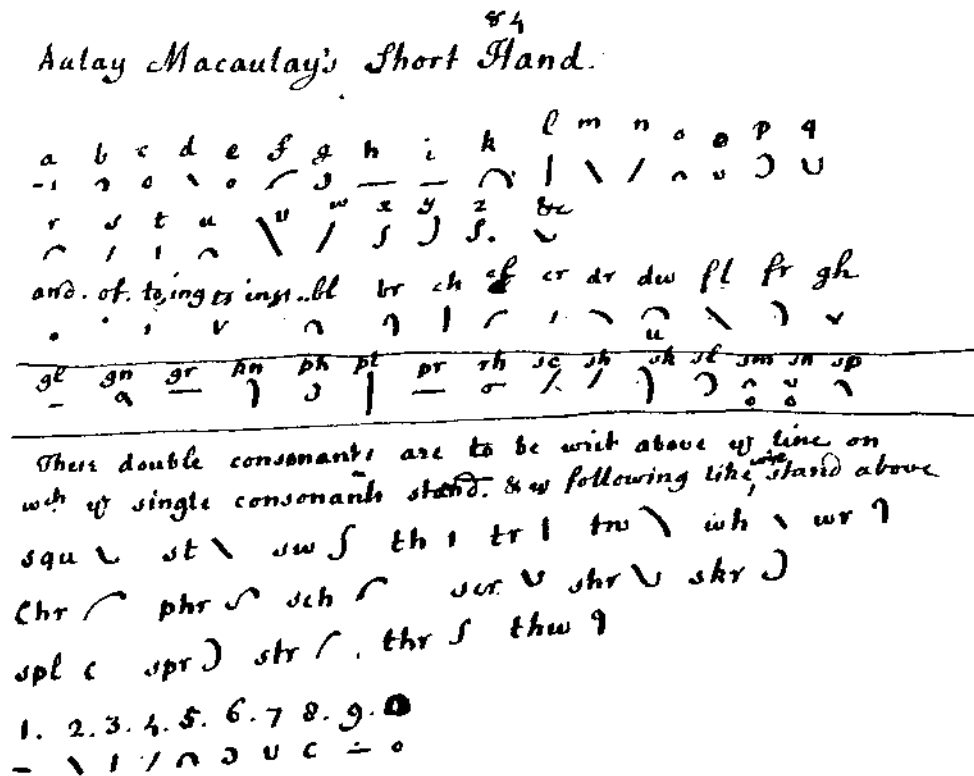 84
Aulay Macaulay's Short Hand.
a b c d e f g h i k l m n o p q
r s t u v w x y z &c
and. of. to, ing
bl br ch cr dr dw fl fr gh
gl gn gr kn ph pl pr rh sc sh sk sl sm sn sp
These double consonants are to be writ above ye line on
wch ye single consonants stand. & ye following likewise stand above
squ st sw th tr tw wh wr
Chr phr sch scr shr skr
spl spr str thr thw
1. 2. 3. 4. 5. 6. 7 8. 9. 0